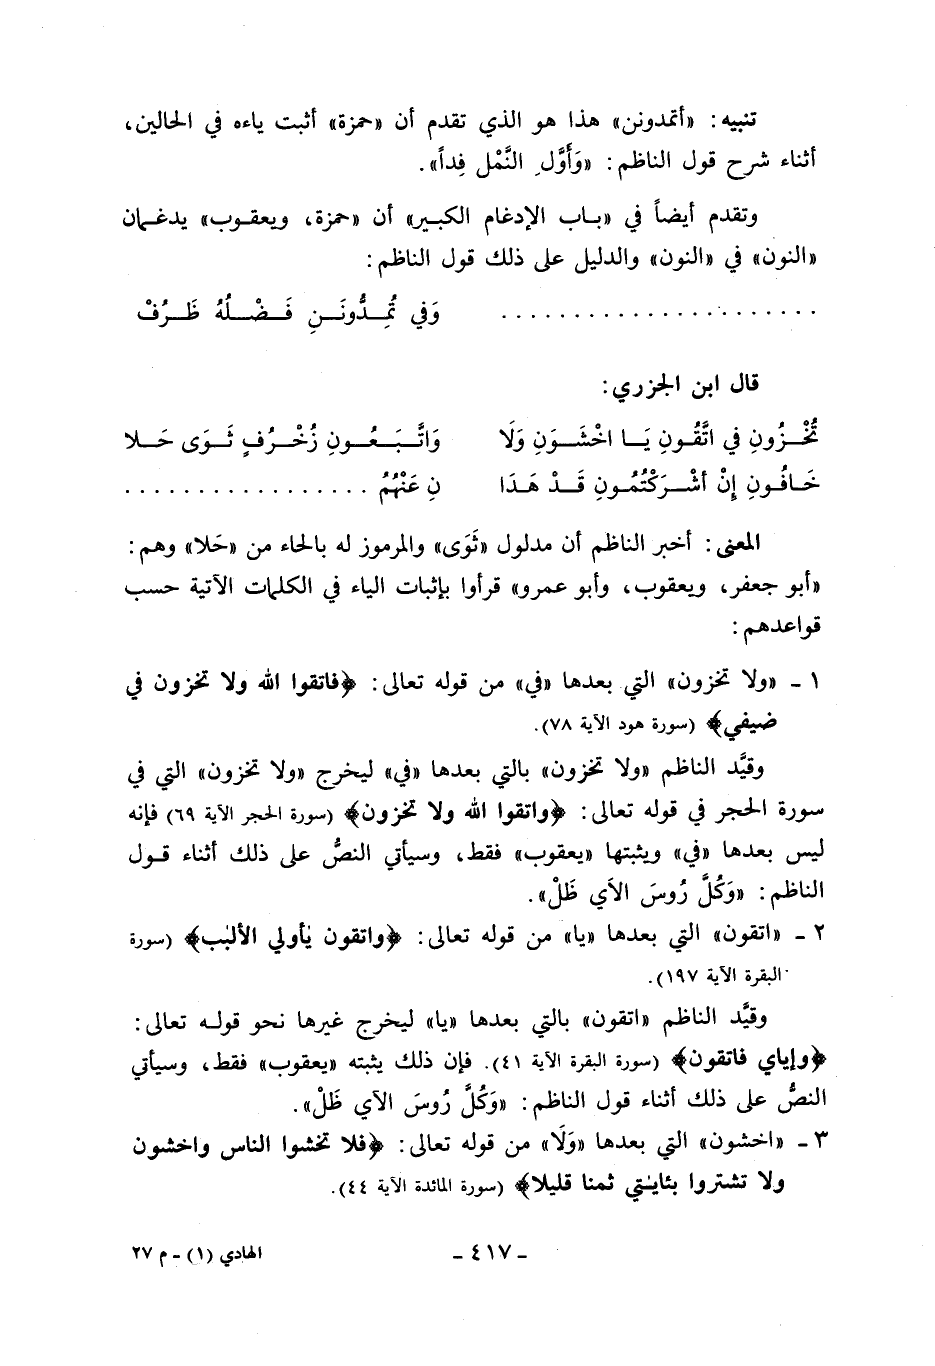 تنبيه: «أتمدونن» هذا هو الذي تقدم أن «حمزة» أثبت ياءه في الحالين،
أثناء شرح قول الناظم: «وَأَوَّلِ النَّمْلِ فِداً».
وتقدم أيضاً في «باب الإدغام الكبير» أن «حمزة، ويعقوب» يدغمان
«النون» في «النون» والدليل على ذلك قول الناظم:
. . . . . . . . . . . . . . . . . . . . . . وَفي تُمِدُّونَنِ فَضْلُهُ ظَرُفْ
قال ابن الجزري:
تُخْزُونِ في اتَّقُونِ يَا اخْشَوَنِ وَلَا وَاتَّبَعُونِ زُخْرُفٍ ثَوَى حَلا
خَافُونِ إنْ أَشْرَكْتُمُونِ قَدْ هَدَا نِ عَنْهُمُ . . . . . . . . . . . . . . . . .
المعنى: أخبر الناظم أن مدلول «ثَوَى» والمرموز له بالحاء من «حَلا» وهم:
«أبو جعفر، ويعقوب، وأبو عمرو» قرأوا بإثبات الياء في الكلمات الآتية حسب
قواعدهم:
١ - «ولا تخزون» التي بعدها «في» من قوله تعالى: ﴿فاتقوا الله ولا تخزون في
ضيفي﴾ (سورة هود الآية ٧٨).
وقيَّد الناظم «ولا تخزون» بالتي بعدها «في» ليخرج «ولا تخزون» التي في
سورة الحجر في قوله تعالى: ﴿واتقوا الله ولا تخزون﴾ (سورة الحجر الآية ٦٩) فإنه
ليس بعدها «في» ويثبتها «يعقوب» فقط، وسيأتي النصُّ على ذلك أثناء قول
الناظم: «وَكُلَّ رُوسَ الآَي ظَلْ».
٢ - «اتقون» التي بعدها «يا» من قوله تعالى: ﴿واتقون يٰأولي الألبٰب﴾ (سورة
البقرة الآية ١٩٧).
وقيَّد الناظم «اتقون» بالتي بعدها «يا» ليخرج غيرها نحو قوله تعالى:
﴿وإياي فاتقون﴾ (سورة البقرة الآية ٤١). فإن ذلك يثبته «يعقوب» فقط، وسيأتي
النصُّ على ذلك أثناء قول الناظم: «وَكُلَّ رُوسَ الآي ظَلْ».
٣ - «اخشون» التي بعدها «وَلَا» من قوله تعالى: ﴿فلا تخشوا الناس واخشون
ولا تشتروا بئايٰتي ثمنا قليلا﴾ (سورة المائدة الآية ٤٤).
- ٤١٧ -
الهادي (١) - م ٢٧